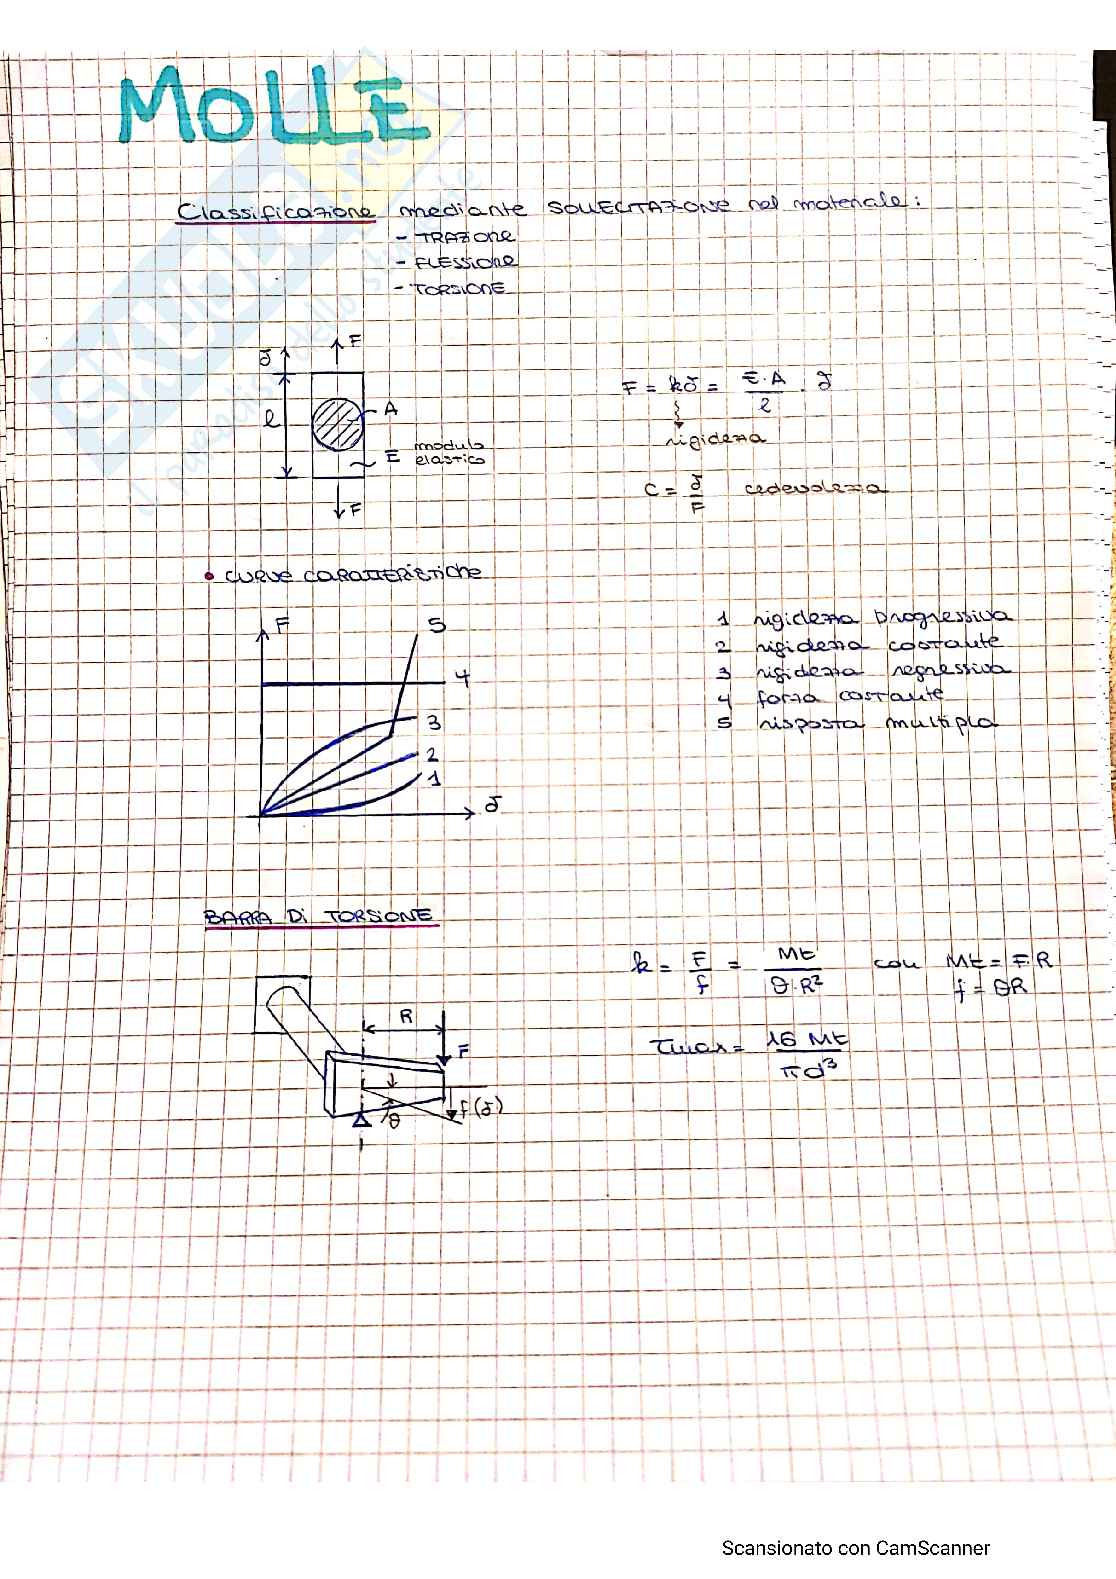 MOLLE
Classificazione mediante SOLLECITAZIONE nel materiale:
- TRAZIONE
- FLESSIONE
- TORSIONE
δ F
l A
E modulo elastico
F
F = kδ = E·A/l · δ
rigidezza
C = δ/F cedevolezza
• CURVE CARATTERISTICHE
F
5
4
3
2
1
δ
1 rigidezza progressiva
2 rigidezza costante
3 rigidezza regressiva
4 forza costante
5 risposta multipla
BARRA Di TORSIONE
R
F
f(δ)
θ
k = F/f = Mt/θ·R² con Mt = F·R
f = θR
τmax = 16 Mt/πd³
Skuola.net
il paradiso dello studente
Scansionato con CamScanner